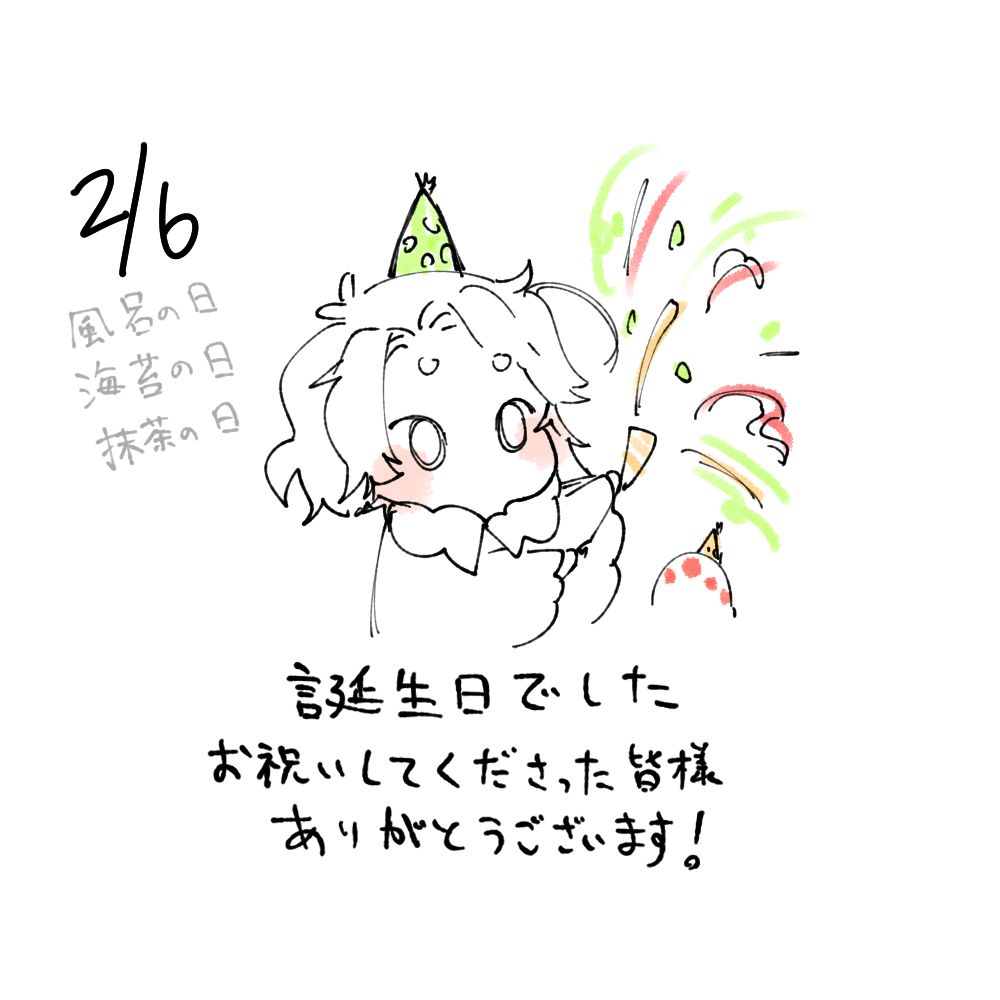 2/6
風呂の日
海苔の日
抹茶の日
誕生日でした
お祝いしてくださった皆様
ありがとうございます!